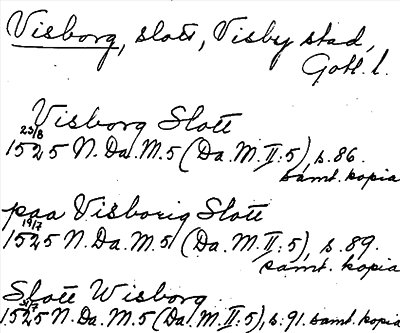 Visborg, slott, Visby stad,
Gotl. l.
Visborg Slott
23/8
1525 N. Da. M. 5 (Da. M. II: 5), s. 86.
samt. kopia
paa Visborig Slott
19/7
1525 N. Da. M. 5 (Da. M. II: 5), s. 89.
samt. kopia
Slott Wisborg
1525 N. Da. M. 5 (Da. M. II: 5), s. 91. samt. kopia